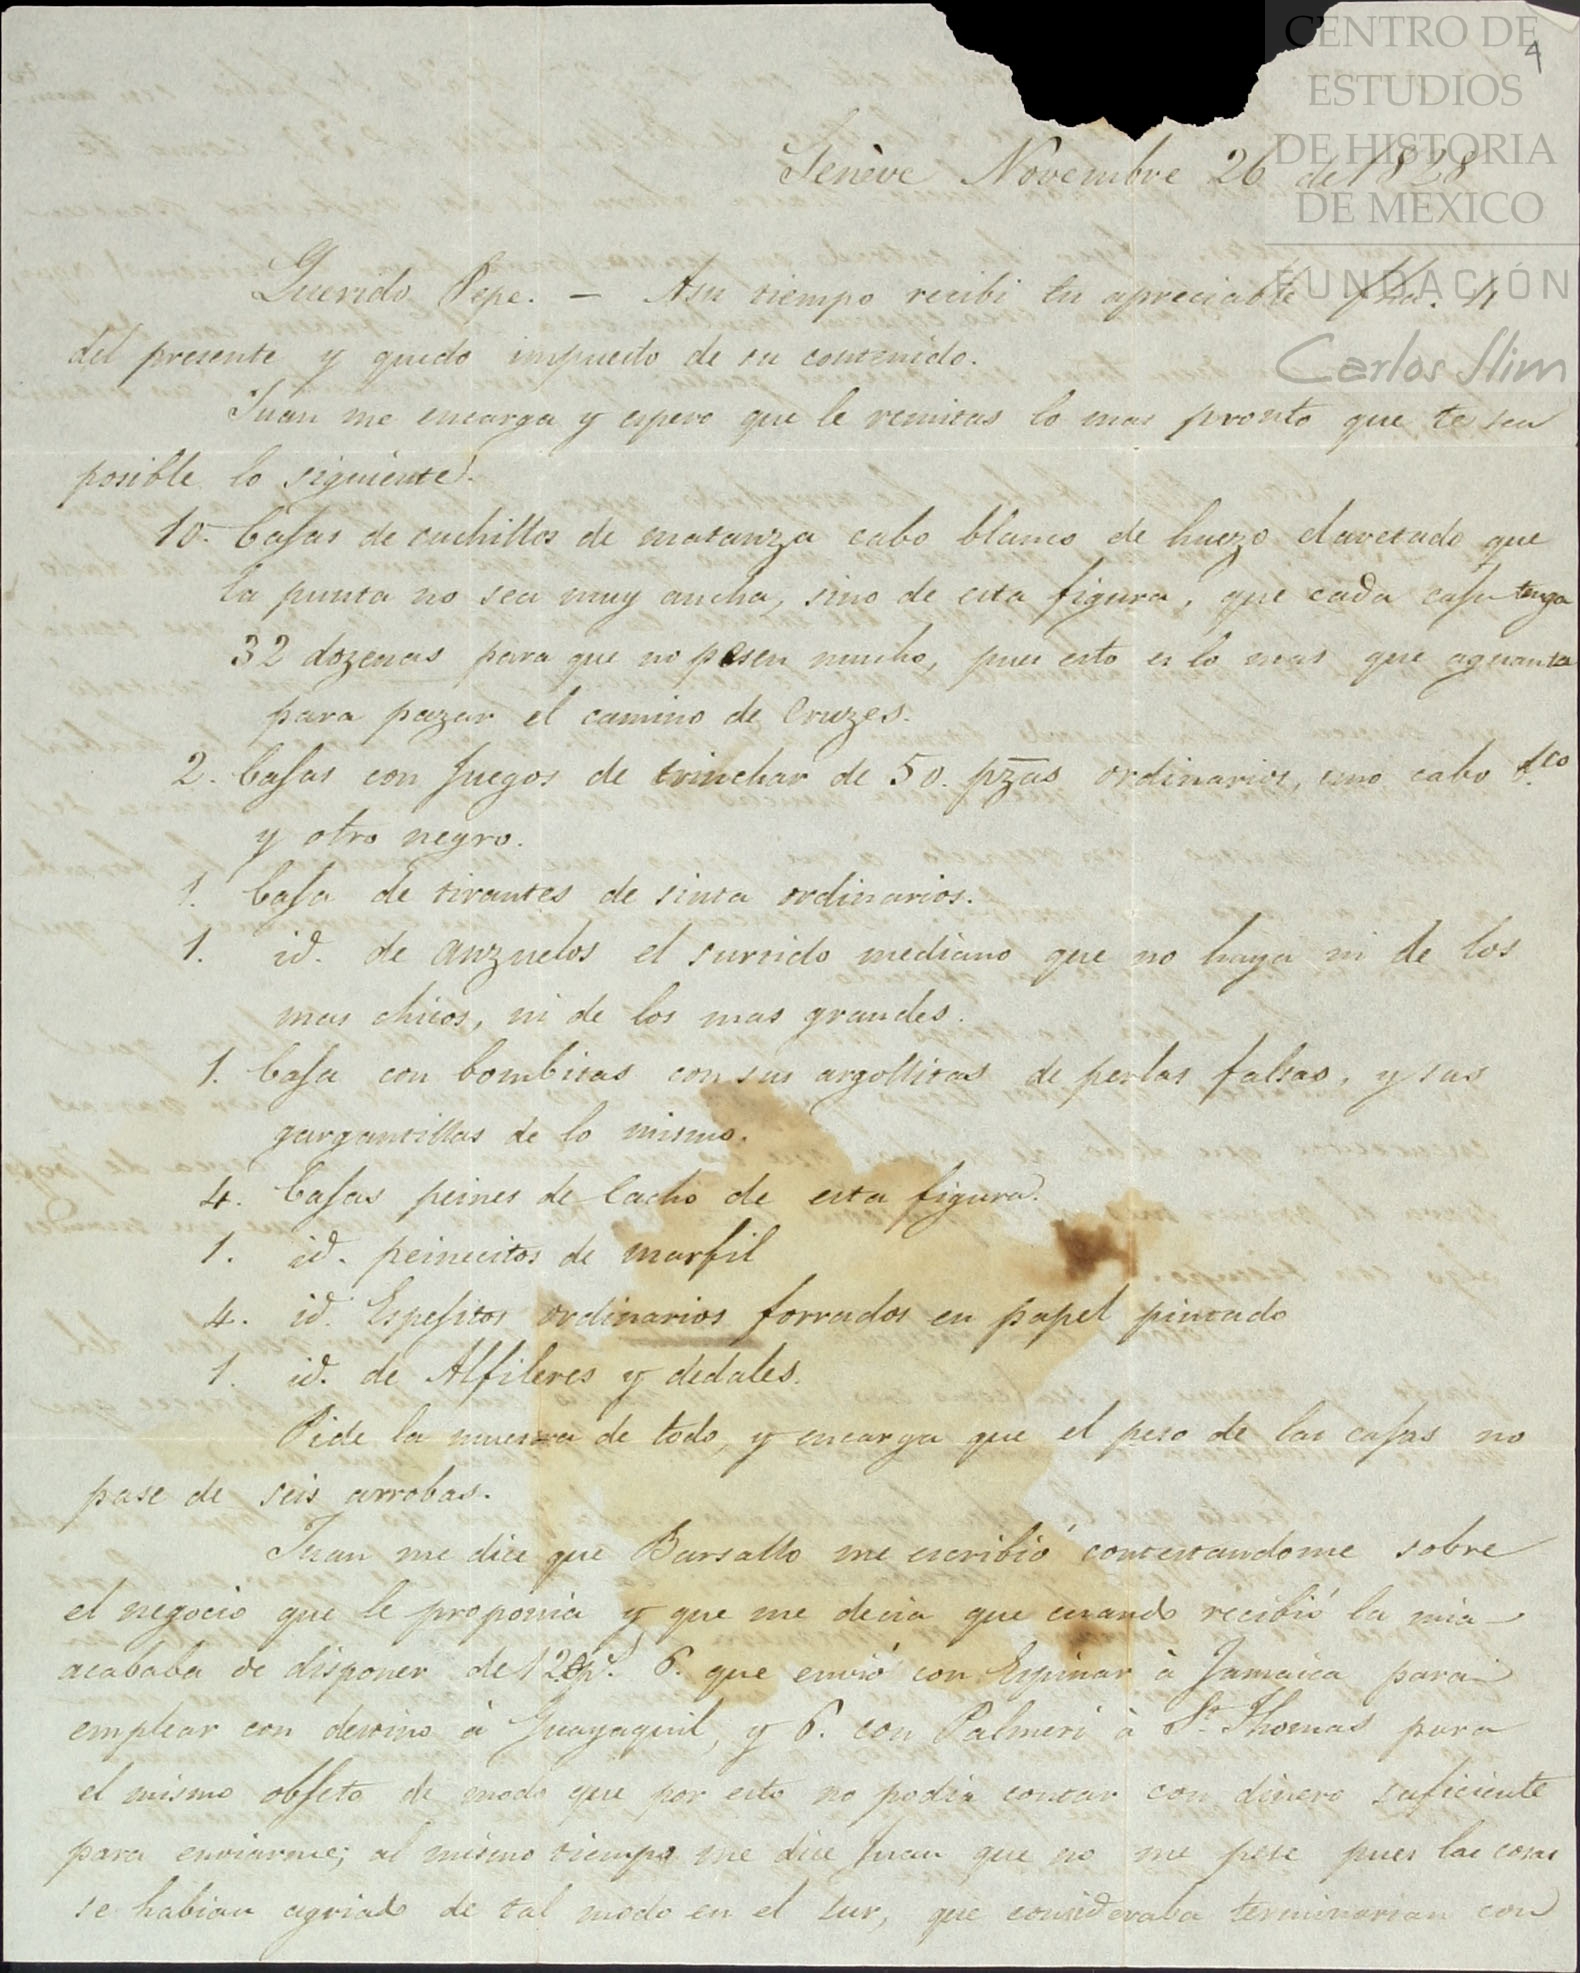 CENTRO DE
ESTUDIOS
DE HISTORIA
DE MÉXICO
FUNDACIÓN
Carlos Slim
4
Genève Novembre 26 de 1828
Querido Pepe. — Asu tiempo recibi tu apreciable fha. 11
del presente y quedo impuesto de su contenido.
Juan me encarga y espero que le remitas lo mas pronto que te sea
posible lo siguiente.
10. Cajas de cuchillos de matanza cabo blanco de huezo clavetado que
la punta no sea muy ancha, sino de esta figura, que cada caja tenga
32 dozenas para que no pesen mucho, pues esto es lo mas que aguanta
para pazar el camino de Cruzes.
2. Cajas con Juegos de trinchar de 50. pzas ordinarios, uno cabo bco
y otro negro.
1. Caja de tirantes de sinta ordinarios.
1. id. de anzuelos el surtido mediano que no haya ni de los
mas chicos, ni de los mas grandes.
1. Caja con bombitas con sus argollitas de perlas falsas, y sus
gargantillas de lo mismo.
4. Cajas peines de Cacho de esta figura.
1. id. peinecitos de marfil
4. id. Espejitos ordinarios forrados en papel pintado
1. id. de Alfileres y dedales.
Pide la muestra de todo, y encarga que el peso de las cajas no
pase de seis arrobas.
Juan me dice que Barsallo me escribió contestandome sobre
el negocio que le proponia y que me decia que cuando recibió la mia
acababa de disponer de 12 6. que envió con Espinar à Jamaica para
emplear con destino à Guayaquil, y 6. con Palmeri à St. Thomas para
el mismo objeto de modo que por esto no podia contar con dinero suficiente
para enviarme; al mismo tiempo me dice Juan que no me pese pues las cosas
se habian agriado de tal modo en el sur, que consideraba terminarian con